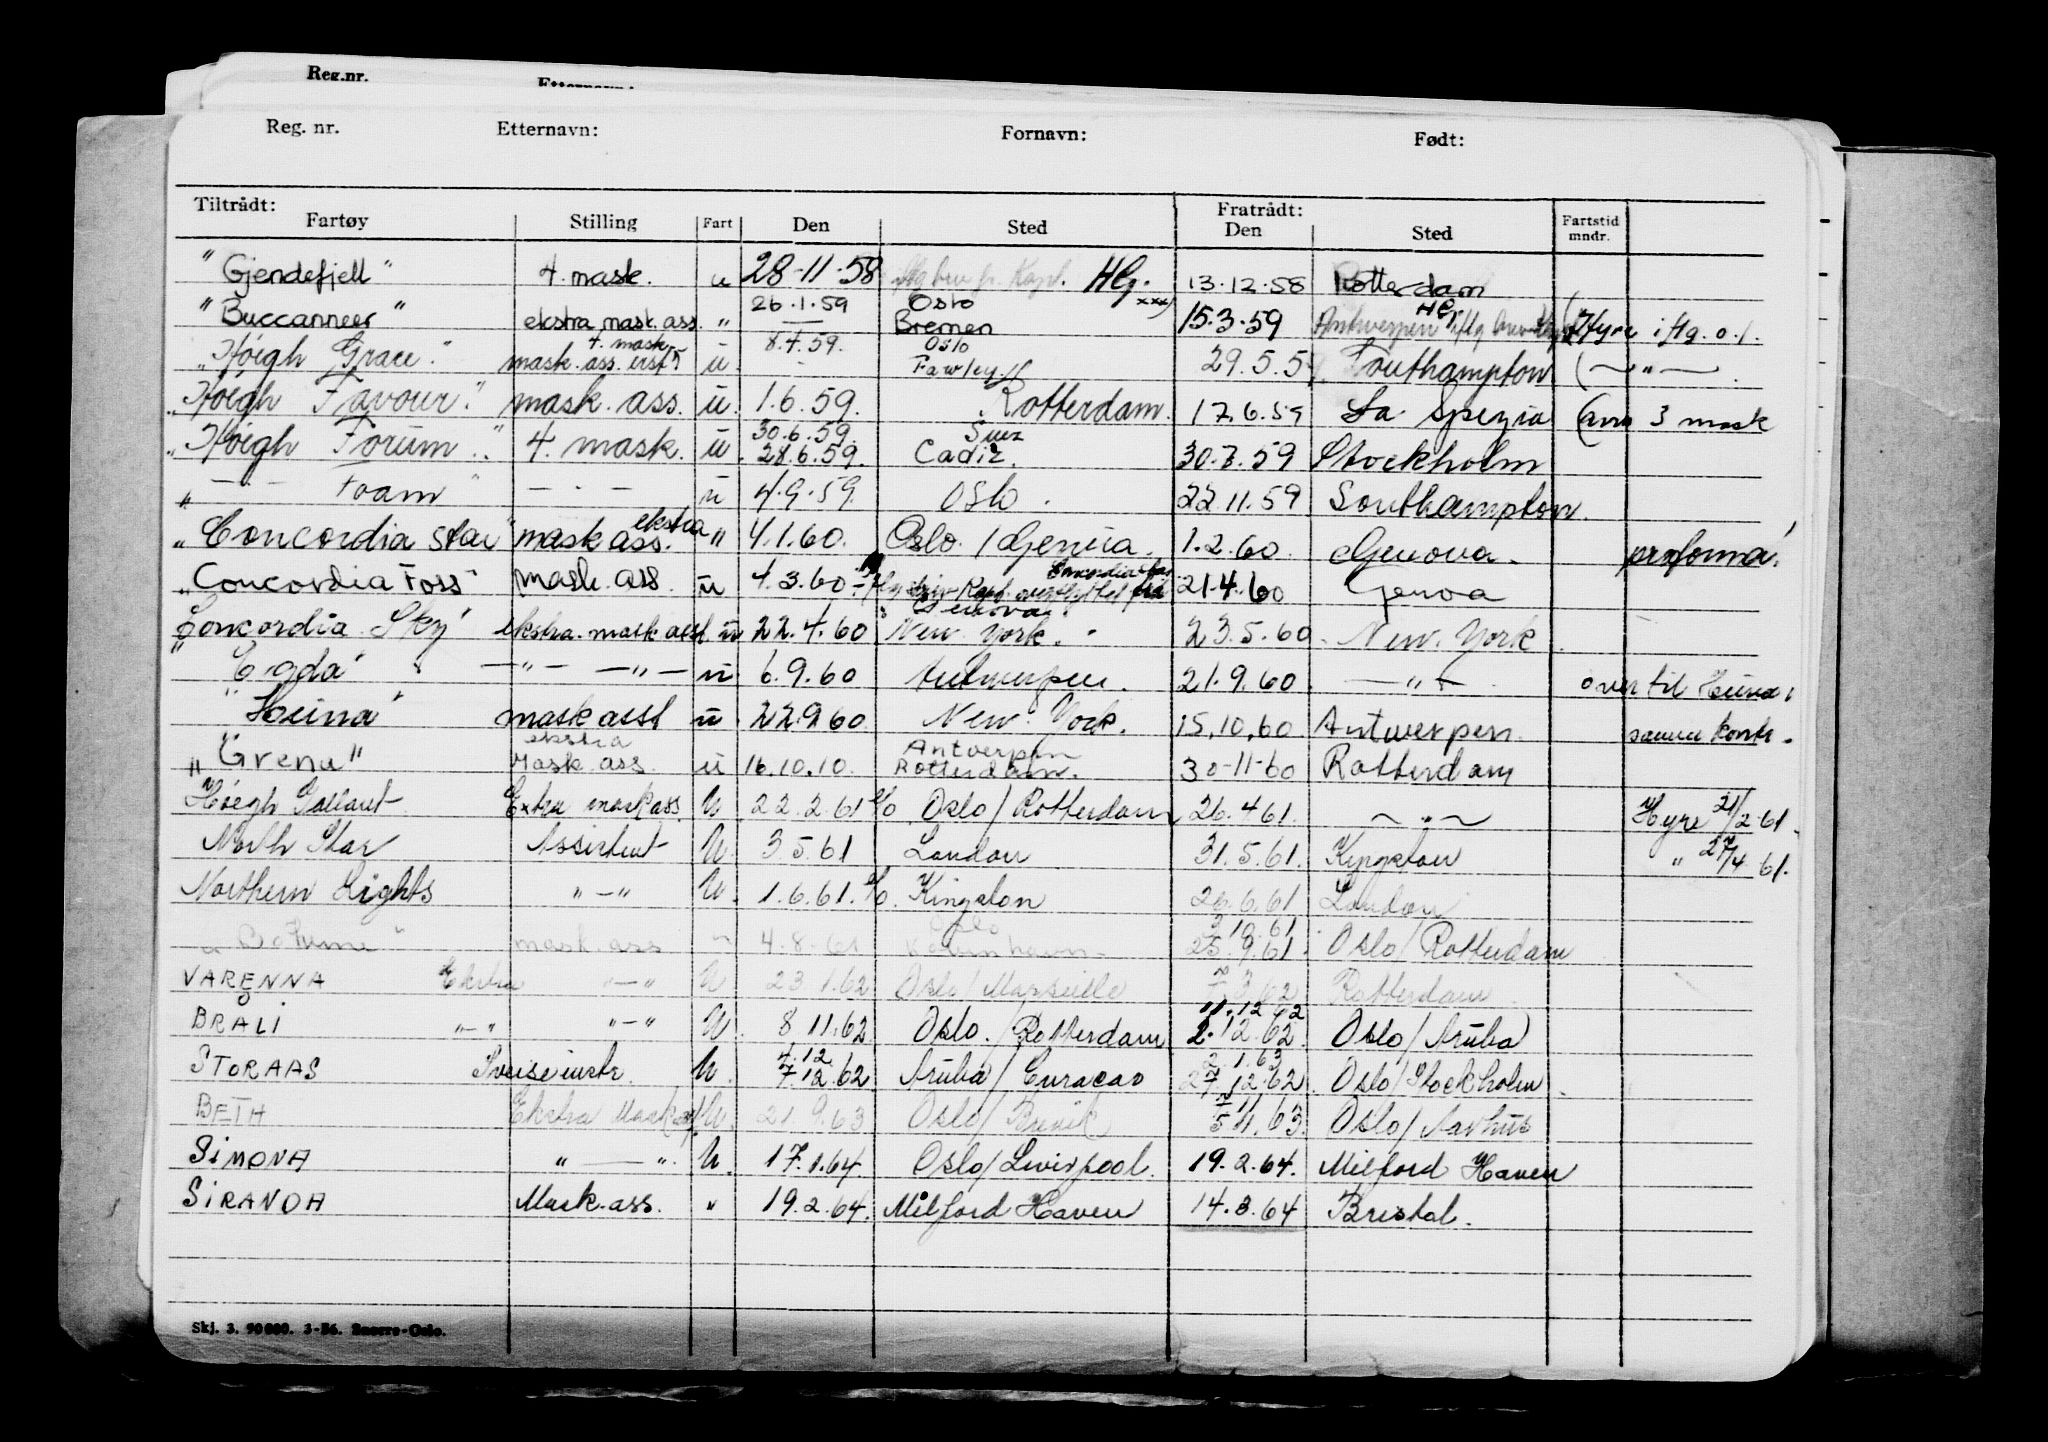 Reg.nr.
Reg. nr. Etternavn: Fornavn: Født:
Tiltrådt: Fratrådt:
Fartøy Stilling Fart Den Sted Den Sted Fartstid mndr.
"Gjendefjell" 4. mask. u 28-11-58 Hlg. 13.12-58 Rotterdam
26.1.59 Oslo xxx)
"Buccanneer" ekstra mask. ass. " Bremen 15.3.59 Antwerpen Hyre iflg. o.l.
4. mask 8.4.59. Oslo
"Höegh Grace." mask. ass. u - Fawley. 29.5.59. Southampton (—"—
"Höegh Favour." mask. ass. u. 1.6.59. Rotterdam. 17.6.59 La Spezia (ans 3 mask
30.6.59. Suez
"Höegh Forum." 4. mask. u. 28.6.59. Cadiz. 30.7.59 Stockholm
" —.— Foam" —.— u 4.9.59. Oslo. 22.11.59 Southampton.
"Concordia Star" mask ass. ekstra " 4.1.60. Oslo./Genua. 1.2.60. Genova. proforma.
"Concordia Foss" mask. ass. u 4.3.60 21.4.60 Genoa
Genova.
"Concordia Sky" ekstra. mask asst u 22.4.60 New York. 23.5.60. New. York.
"Egda" —"— —"— u 6.9.60 Antwerpen. 21.9.60. —"— over til Heina
"Heina" mask asst u. 22.9.60 New. York. 15.10.60 Antwerpen. samme kontr.
ekstra Antwerpen
"Grena" Mask. ass. u 16.10.10. Rotterdam. 30-11-60 Rotterdam
Höegh Gallant Extra mask ass. U. 22.2.61 % Oslo/Rotterdam 26.4.61. —"— Hyre 21/2-61.
North Star Assistent U. 3.5.61 London 31.5.61. Kingston " 27/4 61.
Northern Lights "—" U. 1.6.61. % Kingston 26.6.61 London
Oslo 3 10.61
mask. ass " 4.8.61 25.9.61. Oslo/Rotterdam
VARENNA Ekstra "—" U 23 1.62 Oslo/Marseille 62 Rotterdam.
11.12.62
BRALI "—" "—" U. 8 11.62 Oslo./Rotterdam 2.12.62. Oslo/Aruba
4.12 2 1.63
STORAAS Sveiseinstr. U. 7.12.62 Aruba/Curacao 27.12.62. Oslo/Stockholm.
BETH Ekstra Mask ass. U. 21 9.63 Oslo/Brevik 5 11.63. Oslo/Aarhus
SIMONA "—" U. 17.1.64. Oslo/Liverpool. 19.2.64. Milford Haven
SIRANDA Mask. ass. " 19.2.64. Milford Haven 14.3.64 Bristol.
Skj. 3. 90 000. 3-56. Snorre-Oslo.